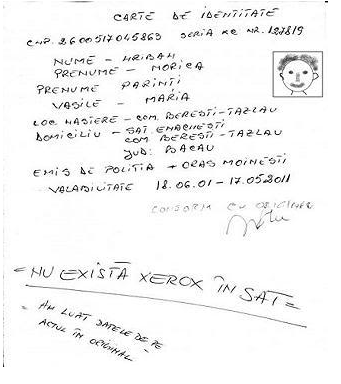 CARTE DE IDENTITATE
CNP. 2600517045863 SERIA KC NR. 127819
NUME – HRIBAN
PRENUME – MORICA
PRENUME PARINTI
VASILE – MARIA
LOC NASTERE – COM. BERESTI-TAZLAU
DOMICILIU – SAT. ENACHESTI
COM. BERESTI-TAZLAU
JUD: BACAU
EMIS DE POLITIA + ORAS MOINESTI
VALABILITATE 18.06.01 – 17.05.2011
CONFORM CU ORIGINALUL
= NU EXISTĂ XEROX ÎN SAT =
= AM LUAT DATELE DE PE
ACTUL ÎN ORIGINAL